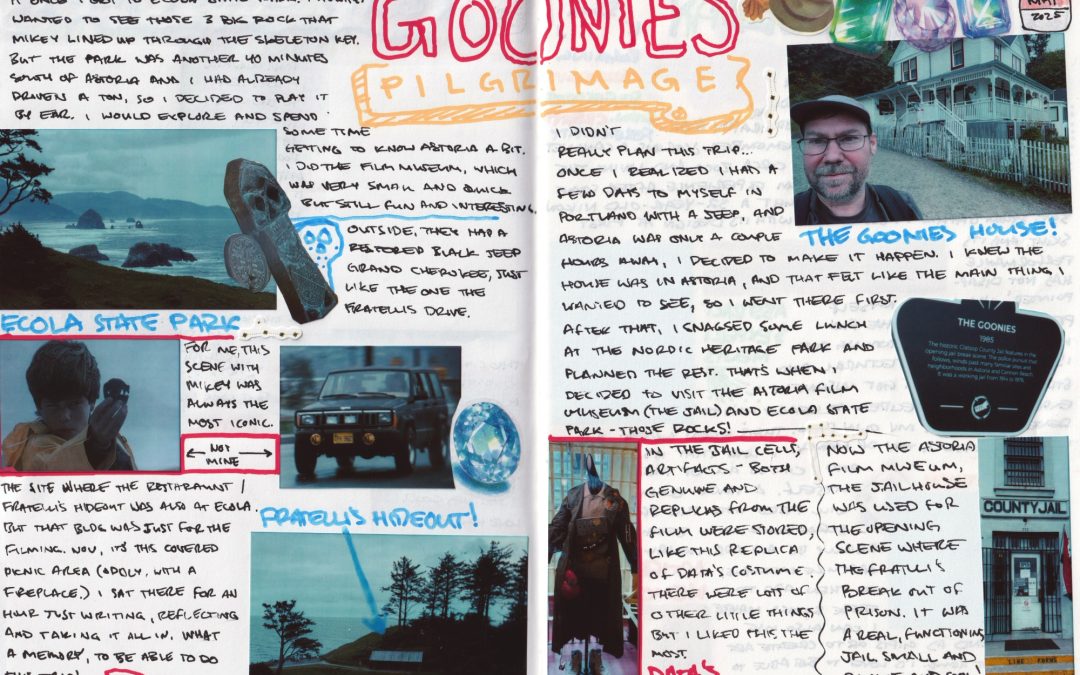 WANTED TO SEE THOSE 3 BIG ROCK THAT
MIKEY LINED UP THROUGH THE SKELETON KEY.
BUT THE PARK WAS ANOTHER 40 MINUTES
SOUTH OF ASTORIA AND I HAD ALREADY
DRIVEN A TON, SO I DECIDED TO PLAY IT
BY EAR. I WOULD EXPLORE AND SPEND
SOME TIME
GETTING TO KNOW ASTORIA A BIT.
I DID THE FILM MUSEUM, WHICH
WAS VERY SMALL AND QUICK
BUT STILL FUN AND INTERESTING.
OUTSIDE, THEY HAD A
RESTORED BLACK JEEP
GRAND CHEROKEE, JUST
LIKE THE ONE THE
FRATELLIS DRIVE.
ECOLA STATE PARK
FOR ME, THIS
SCENE WITH
MIKEY WAS
ALWAYS THE
MOST ICONIC.
NOT
MINE
THE SITE WHERE THE RESTARAUNT /
FRATELLI'S HIDEOUT WAS ALSO AT ECOLA.
BUT THAT BLDG WAS JUST FOR THE
FILMING. NOW, IT'S THIS COVERED
PICNIC AREA (ODDLY, WITH A
FIREPLACE.) I SAT THERE FOR AN
HOUR JUST WRITING, REFLECTING
AND TAKING IT ALL IN. WHAT
A MEMORY, TO BE ABLE TO DO
FRATELLI'S HIDEOUT!
GOONIES
PILGRIMAGE
MAY
2025
I DIDN'T
REALLY PLAN THIS TRIP...
ONCE I REALIZED I HAD A
FEW DAYS TO MYSELF IN
PORTLAND WITH A JEEP, AND
ASTORIA WAS ONLY A COUPLE
HOURS AWAY, I DECIDED TO MAKE IT HAPPEN. I KNEW THE
HOUSE WAS IN ASTORIA, AND THAT FELT LIKE THE MAIN THING I
WANTED TO SEE, SO I WENT THERE FIRST.
AFTER THAT, I SNAGGED SOME LUNCH
AT THE NORDIC HERITAGE PARK AND
PLANNED THE REST. THAT'S WHEN I
DECIDED TO VISIT THE ASTORIA FILM
MUSEUM (THE JAIL) AND ECOLA STATE
PARK - THOSE ROCKS!
THE GOONIES HOUSE!
THE GOONIES
1985
The historic Clatsop County Jail features in the
opening jail break scene. The police pursuit that
follows, winds past many familiar sites and
neighborhoods in Astoria and Cannon Beach.
It was a working jail from 1914 to 1976.
IN THE JAIL CELLS,
ARTIFACTS - BOTH
GENUINE AND
REPLICAS FROM THE
FILM WERE STORED,
LIKE THIS REPLICA
OF DATA'S COSTUME.
THERE WERE LOTS OF
OTHER LITTLE THINGS
BUT I LIKED THIS THE
MOST.
DATA'S
NOW THE ASTORIA
FILM MUSEUM,
THE JAILHOUSE
WAS USED FOR
THE OPENING
SCENE WHERE
THE FRATELLI'S
BREAK OUT OF
PRISON. IT WAS
A REAL, FUNCTIONING
JAIL SMALL AND
COUNTY JAIL